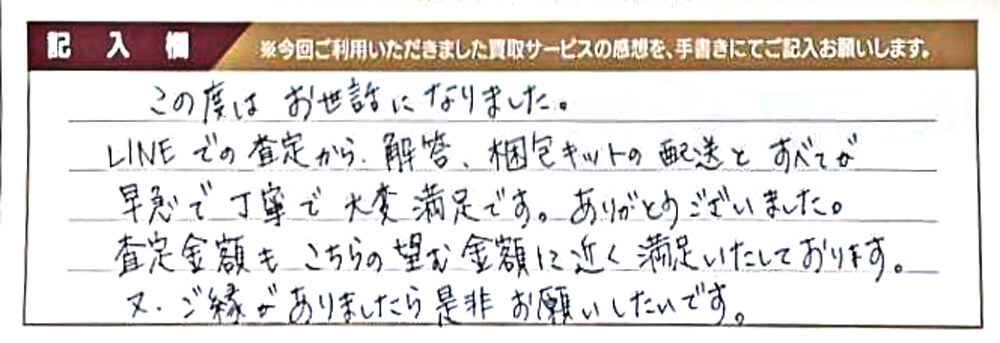 記入欄 ※今回ご利用いただきました買取サービスの感想を、手書きにてご記入お願いします。
この度は お世話になりました。
LINEでの査定から、解答、梱包キットの配送とすべてが
早急で丁寧で大変満足です。ありがとうございました。
査定金額もこちらの望む金額に近く満足いたしております。
又、ご縁がありましたら是非お願いしたいです。